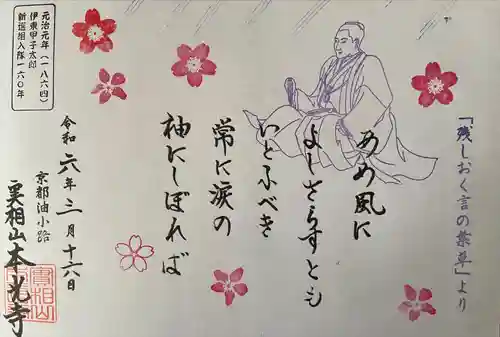 「残しおく言の葉草」より
あめ風に
よしさらすとも
いとふべき
常に涙の
袖にしぼれば
元治元年(一八六四)
伊東甲子太郎
新選組入隊一六〇年
令和六年三月十六日
京都油小路
実相山本光寺